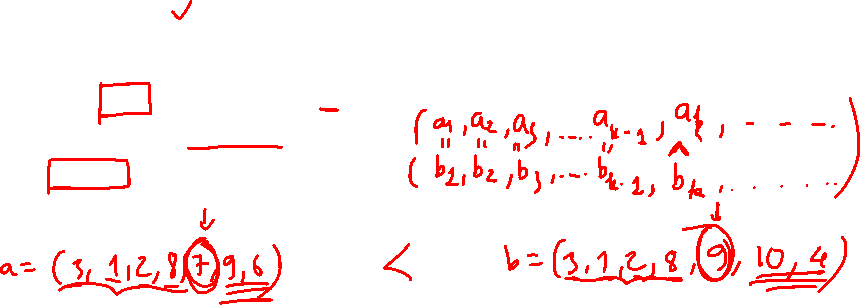 (a1, a2, a3, .... ak-1, ak, - - - -
(b1, b2, b3, ... bk-1, bk, . . . . . . )
a = (3, 1, 2, 8, 7, 9, 6) < b = (3, 1, 2, 8, 9, 10, 4)